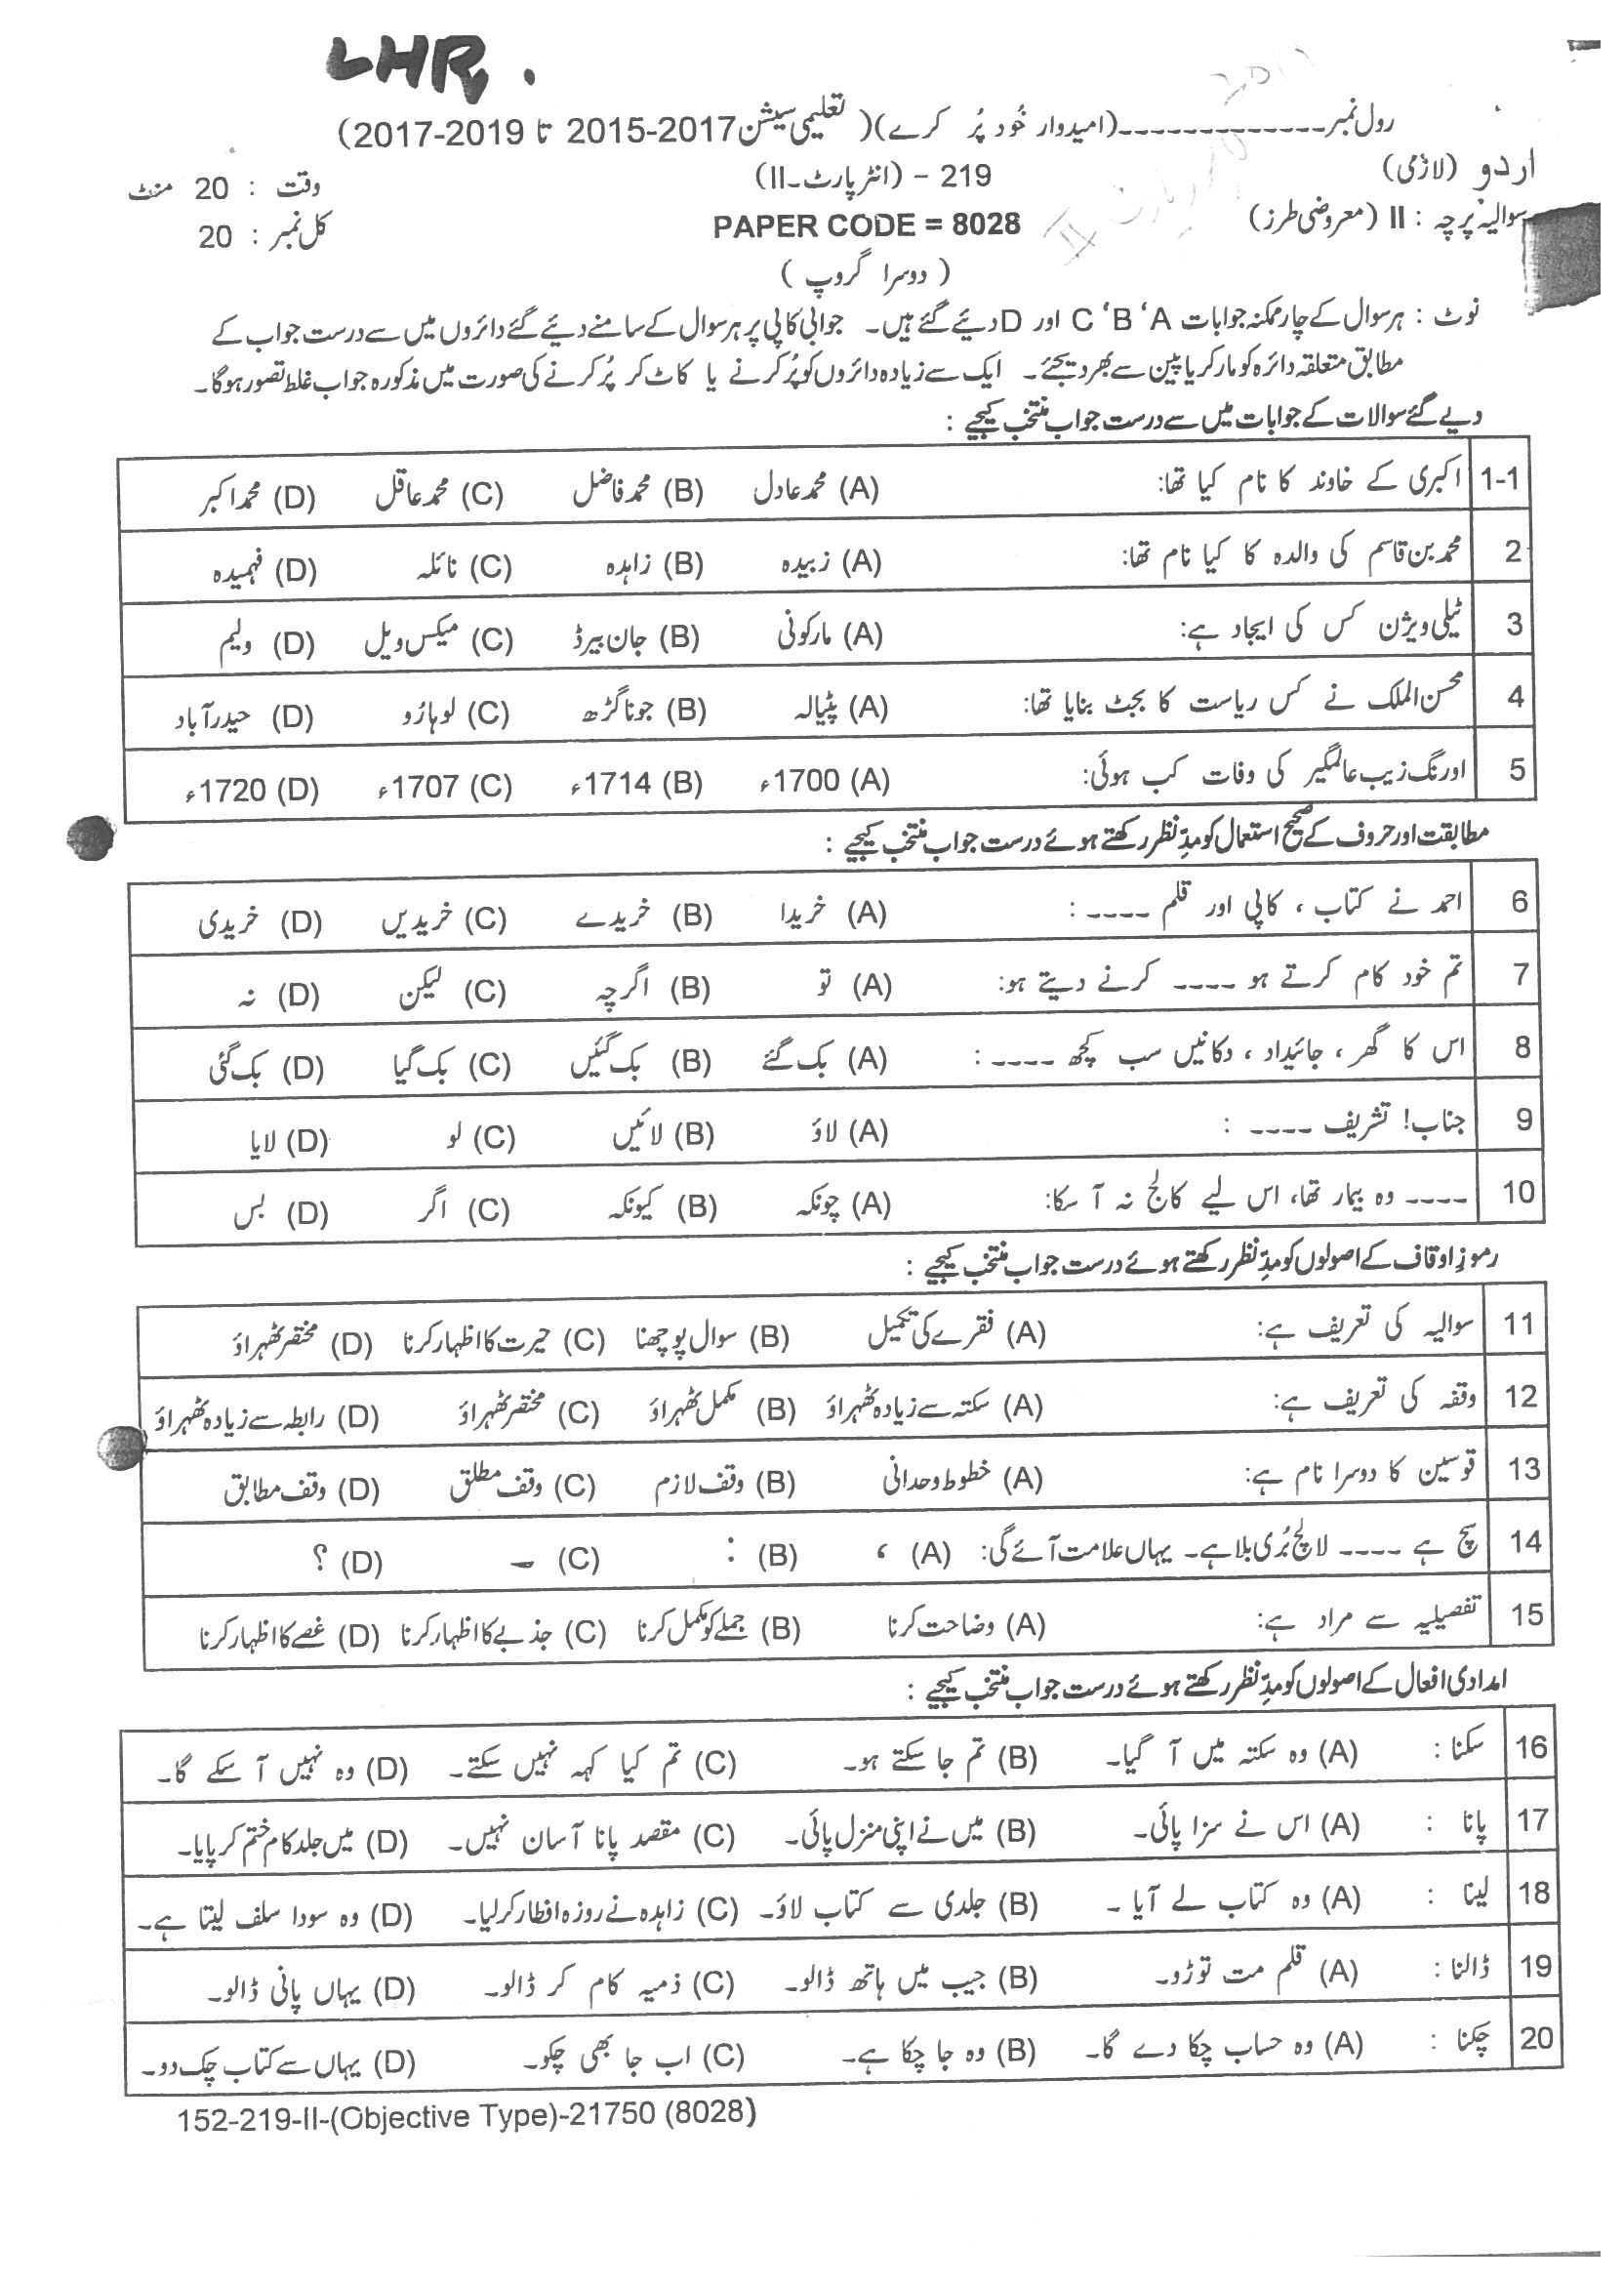 LHR.
رول نمبر_ _ _ _ _ _ _ _ _ _ _ _ _(امیدوار خُود پُر کرے)( تعلیمی سیشن 2017-2015 تا 2019-2017)
اردو (لازمی) 219 - (انٹر پارٹ۔II) وقت : 20 منٹ
سوالیہ پرچہ : II (معروضی طرز) PAPER CODE = 8028 کل نمبر : 20
( دوسرا گروپ )
نوٹ : ہر سوال کے چار ممکنہ جوابات A‘ B‘ C اور D دئیے گئے ہیں۔ جوابی کاپی پر ہر سوال کے سامنے دئیے گئے دائروں میں سے درست جواب کے
مطابق متعلقہ دائرہ کو مارکر یا پین سے بھر دیجئے۔ ایک سے زیادہ دائروں کو پُر کرنے یا کاٹ کر پُر کرنے کی صورت میں مذکورہ جواب غلط تصور ہوگا۔
دیے گئے سوالات کے جوابات میں سے درست جواب منتخب کیجیے :
1-1 اکبری کے خاوند کا نام کیا تھا: (A) محمد عادل (B) محمد فاضل (C) محمد عاقل (D) محمد اکبر
2 محمد بن قاسم کی والدہ کا کیا نام تھا: (A) زبیدہ (B) زاہدہ (C) نائلہ (D) فہمیدہ
3 ٹیلی ویژن کس کی ایجاد ہے: (A) مارکونی (B) جان بیرڈ (C) میکس ویل (D) ولیم
4 محسن الملک نے کس ریاست کا بجٹ بنایا تھا: (A) پٹیالہ (B) جوناگڑھ (C) لوہارُو (D) حیدرآباد
5 اورنگ زیب عالمگیر کی وفات کب ہوئی: (A) 1700ء (B) 1714ء (C) 1707ء (D) 1720ء
مطابقت اور حروف کے صحیح استعمال کو مدِّ نظر رکھتے ہوئے درست جواب منتخب کیجیے :
6 احمد نے کتاب ، کاپی اور قلم ۔۔۔۔ : (A) خریدا (B) خریدے (C) خریدیں (D) خریدی
7 تم خود کام کرتے ہو ۔۔۔۔ کرنے دیتے ہو: (A) تو (B) اگرچہ (C) لیکن (D) نہ
8 اس کا گھر ، جائیداد ، دکانیں سب کچھ ۔۔۔۔ : (A) بک گئے (B) بک گئیں (C) بک گیا (D) بک گئی
9 جناب! تشریف ۔۔۔۔ : (A) لاؤ (B) لائیں (C) لو (D) لایا
10 ۔۔۔۔ وہ بیمار تھا، اس لیے کالج نہ آ سکا: (A) چونکہ (B) کیونکہ (C) اگر (D) بس
رموزِ اوقاف کے اصولوں کو مدِّ نظر رکھتے ہوئے درست جواب منتخب کیجیے :
11 سوالیہ کی تعریف ہے: (A) فقرے کی تکمیل (B) سوال پوچھنا (C) حیرت کا اظہار کرنا (D) مختصر ٹھہراؤ
12 وقفہ کی تعریف ہے: (A) سکتہ سے زیادہ ٹھہراؤ (B) مکمل ٹھہراؤ (C) مختصر ٹھہراؤ (D) رابطہ سے زیادہ ٹھہراؤ
13 قوسین کا دوسرا نام ہے: (A) خطوط وحدانی (B) وقف لازم (C) وقف مطلق (D) وقف مطابق
14 سچ ہے ۔۔۔۔ لالچ بُری بلا ہے۔ یہاں علامت آئے گی: (A) ، (B) : (C) ۔ (D) ؟
15 تفصیلیہ سے مراد ہے: (A) وضاحت کرنا (B) جملے کو مکمل کرنا (C) جذبے کا اظہار کرنا (D) غصے کا اظہار کرنا
امدادی افعال کے اصولوں کو مدِّ نظر رکھتے ہوئے درست جواب منتخب کیجیے :
16 سکنا : (A) وہ سکتہ میں آ گیا۔ (B) تم جا سکتے ہو۔ (C) تم کیا کہہ نہیں سکتے۔ (D) وہ نہیں آ سکے گا۔
17 پانا : (A) اس نے سزا پائی۔ (B) میں نے اپنی منزل پائی۔ (C) مقصد پانا آسان نہیں۔ (D) میں جلد کام ختم کر پایا۔
18 لینا : (A) وہ کتاب لے آیا ۔ (B) جلدی سے کتاب لاؤ۔ (C) زاہدہ نے روزہ افطار کر لیا۔ (D) وہ سودا سلف لیتا ہے۔
19 ڈالنا : (A) قلم مت توڑو۔ (B) جیب میں ہاتھ ڈالو۔ (C) ذمیہ کام کر ڈالو۔ (D) یہاں پانی ڈالو۔
20 چکنا : (A) وہ حساب چکا دے گا۔ (B) وہ جا چکا ہے۔ (C) اب جا بھی چکو۔ (D) یہاں سے کتاب چک دو۔
152-219-II-(Objective Type)-21750 (8028)